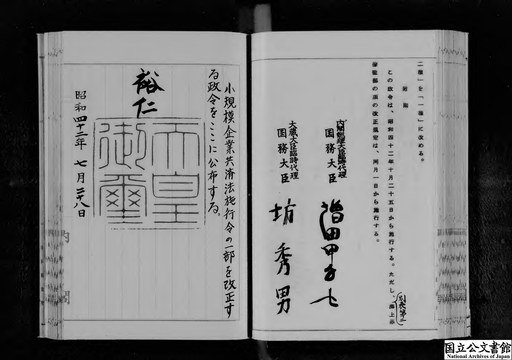 二種」を「一種」に改める。
附則
この政令は、昭和四十二年十月二十五日から施行する。ただし、
の項の改正規定は、同月一日から施行する。
内閣総理大臣臨時代理
国務大臣
大蔵大臣臨時代理
国務大臣
坊秀男
小規模企業共済法施行令の一部を改正す
る政令をここに公布する。
裕仁
天皇
御璽
昭和四十二年七月二十八日
国立公文書館
National Archives of Japan